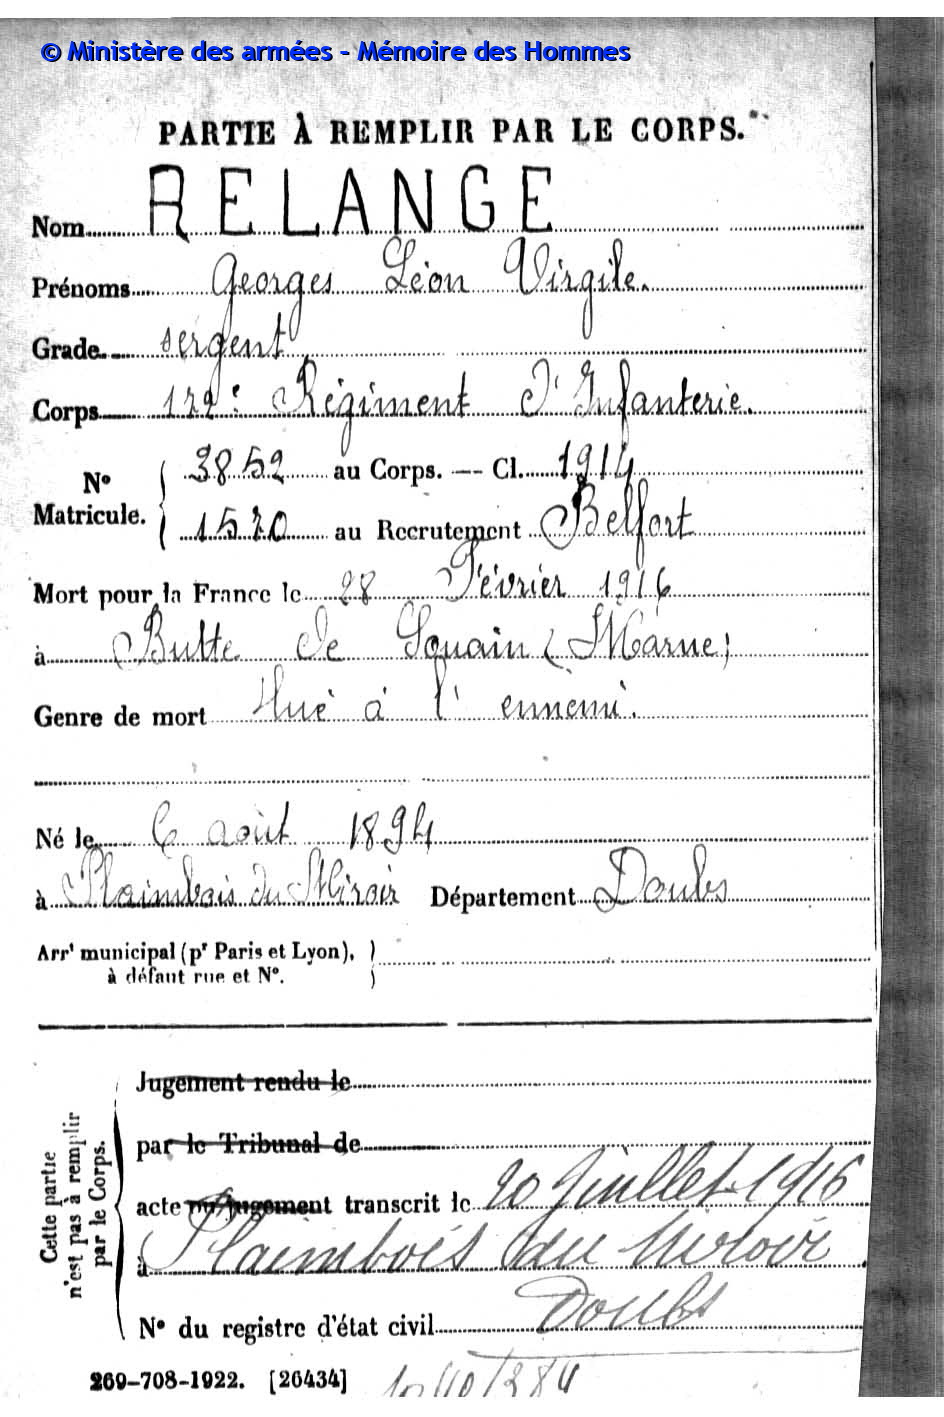 © Ministère des armées - Mémoire des Hommes
PARTIE À REMPLIR PAR LE CORPS.
Nom RELANGE
Prénoms Georges Léon Virgile.
Grade sergent
Corps 172e Régiment d'Infanterie.
N° Matricule. 3852 au Corps. — Cl. 1914
1570 au Recrutement Belfort
Mort pour la France le 28 Février 1916
à Butte de Souain (Marne)
Genre de mort tué à l'ennemi.
Né le 6 août 1894
à Plaimbois du Miroir Département Doubs
Arrt municipal (pr Paris et Lyon),
à défaut rue et N°.
Cette partie
n'est pas à remplir
par le Corps.
Jugement rendu le
par le Tribunal de
acte ou jugement transcrit le 20 Juillet 1916
à Plaimbois du Miroir
Doubs
N° du registre d'état civil
269-708-1922. [26434]